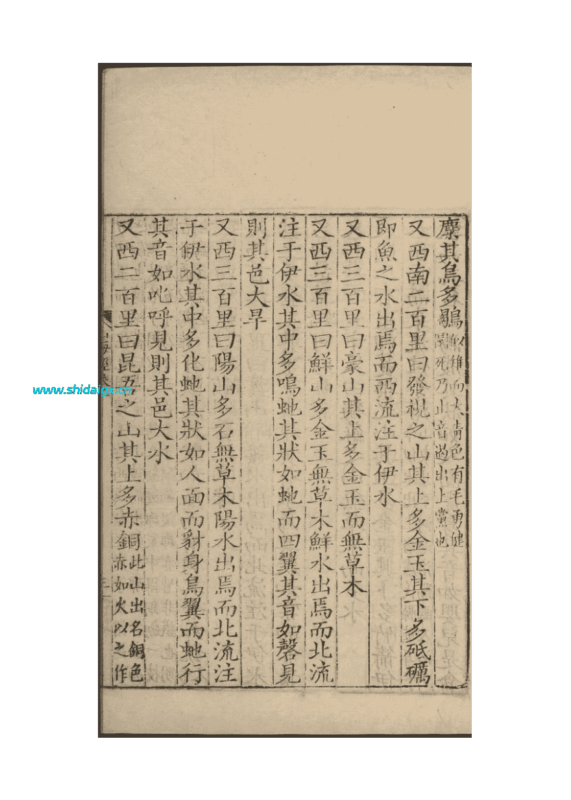 麋其鳥多鶡似雉而大青色有毛勇健
鬬死乃止音遏出上黨也
又西南二百里曰發視之山其上多金玉其下多砥礪
即魚之水出焉而西流注于伊水
又西三百里曰豪山其上多金玉而無草木
又西三百里曰鮮山多金玉無草木鮮水出焉而北流
注于伊水其中多鳴虵其狀如虵而四翼其音如磬見
則其邑大旱
又西三百里曰陽山多石無草木陽水出焉而北流注
于伊水其中多化虵其狀如人面而豺身鳥翼而虵行
其音如叱呼見則其邑大水
又西二百里曰昆吾之山其上多赤銅此山出名銅色
赤如火以之作
www.shidaigx.cn